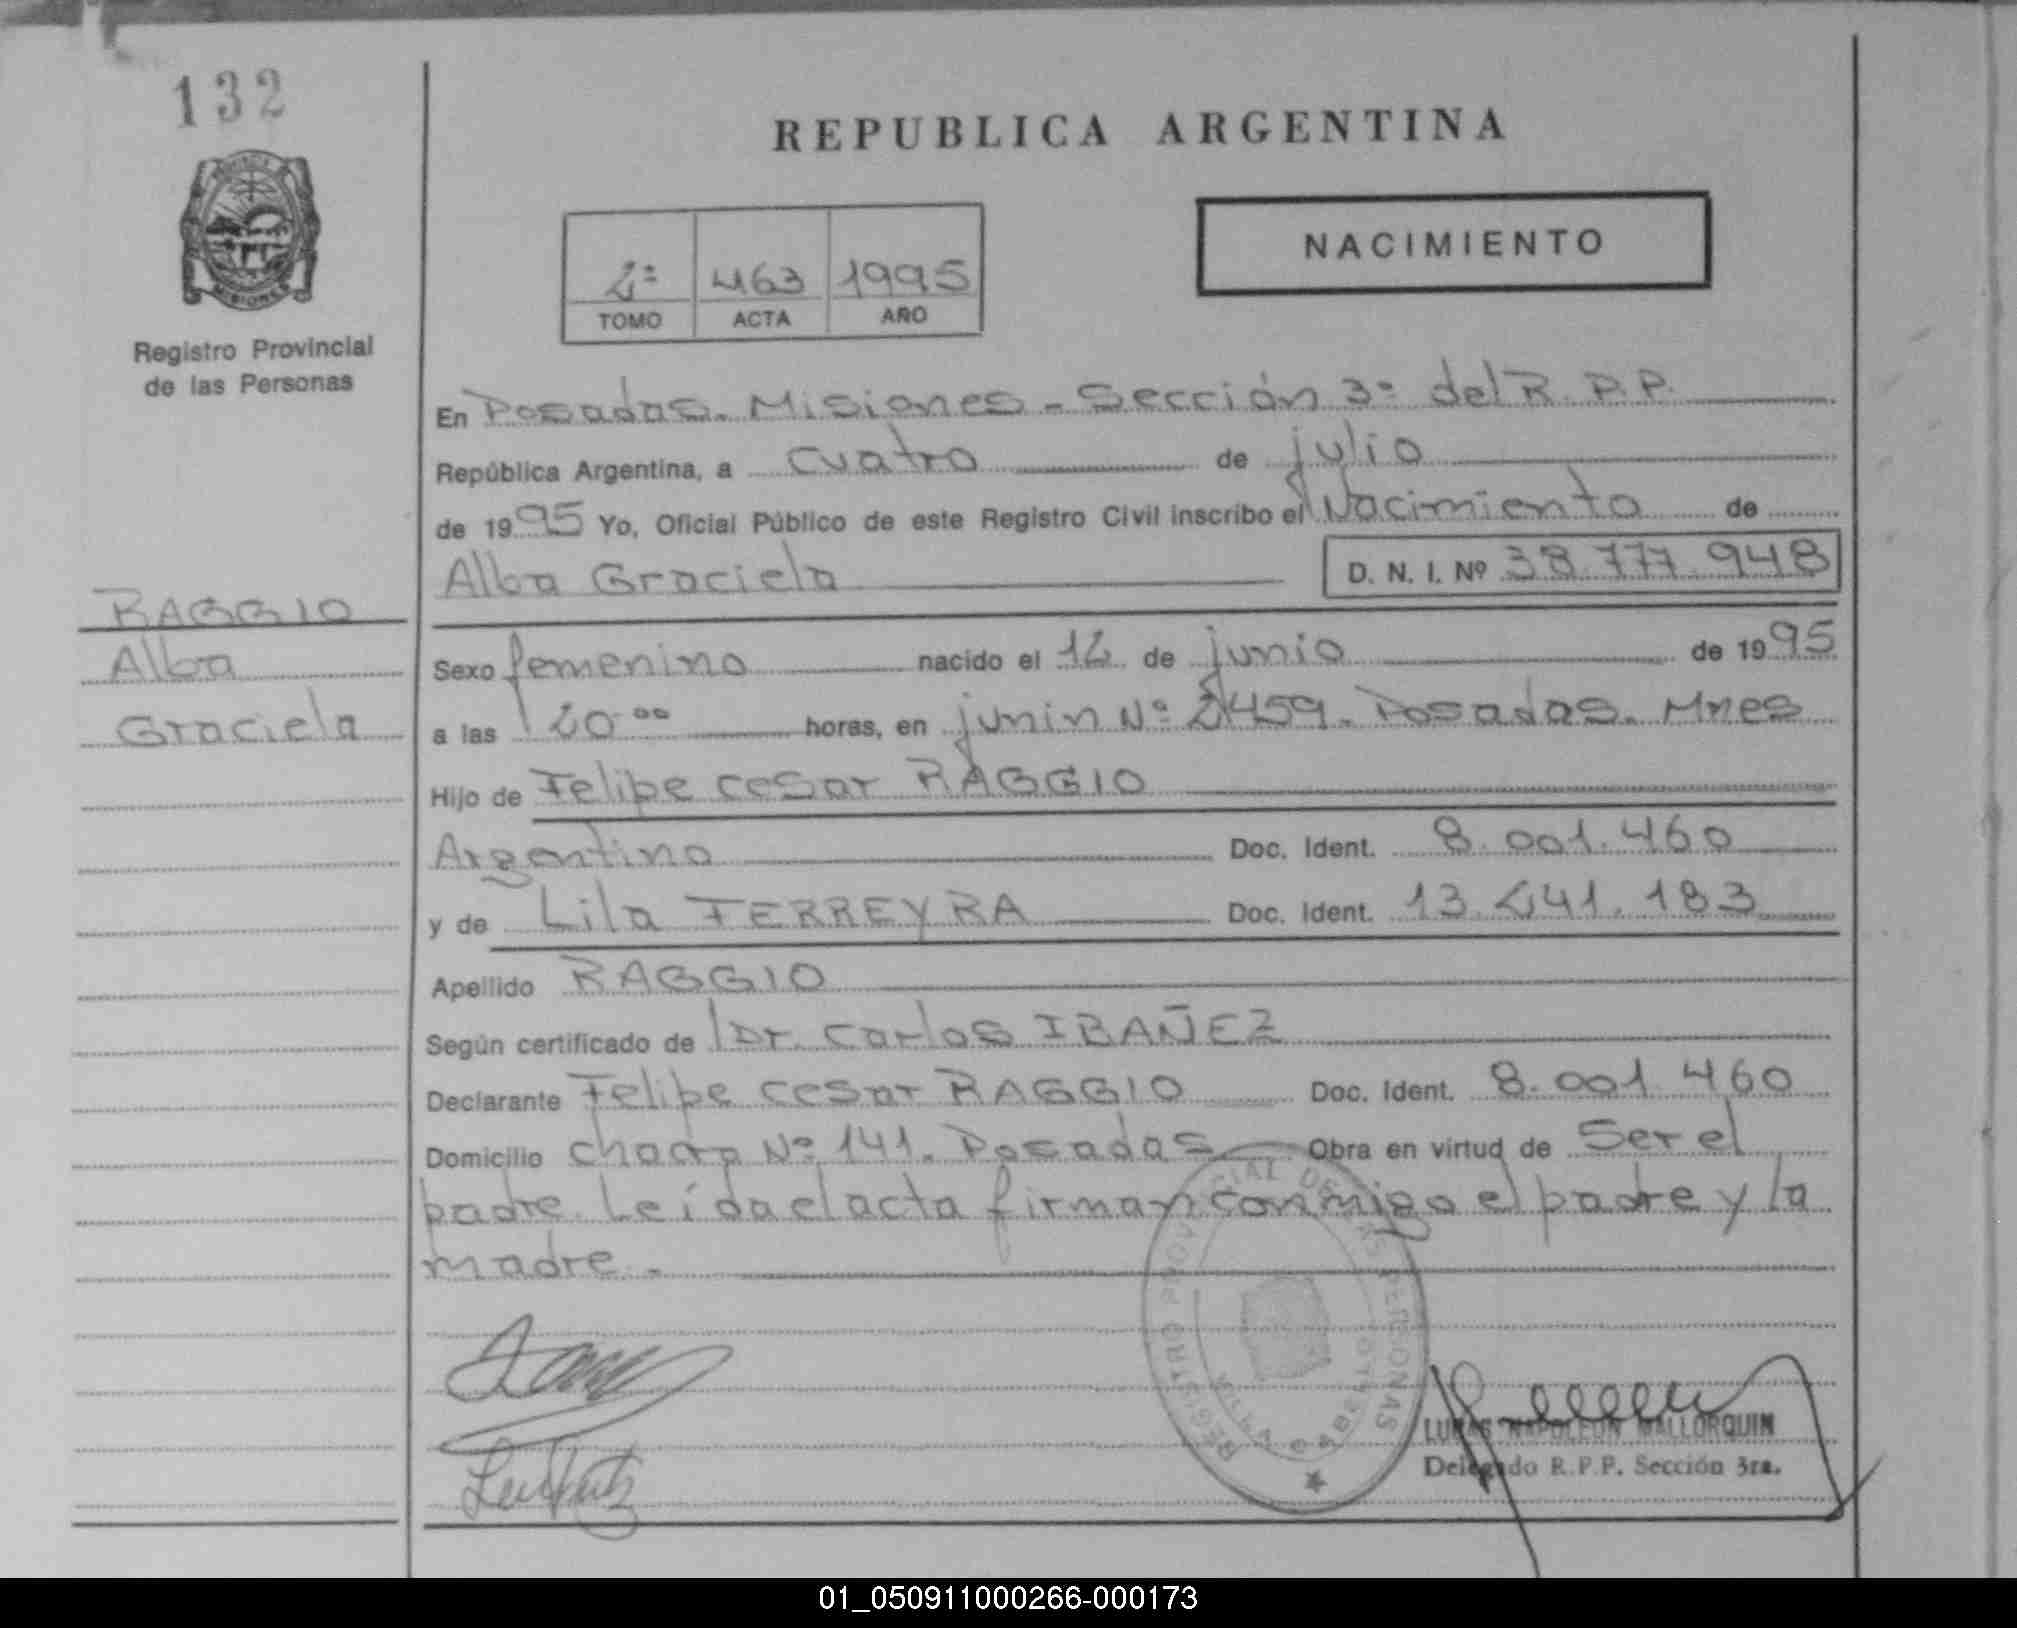 132
MISIONES
Registro Provincial
de las Personas
RAGGIO
Alba
Graciela
REPUBLICA ARGENTINA
2º 463 1995
TOMO ACTA AÑO
NACIMIENTO
En Posadas. Misiones - Sección 3º del R. P. P.
República Argentina, a cuatro de julio
de 1995 Yo, Oficial Público de este Registro Civil inscribo el Nacimiento de
Alba Graciela D. N. I. Nº 38.777.948
Sexo femenino nacido el 12 de junio de 1995
a las 20⁰⁰ horas, en junin Nº 2459. Posadas. Mnes
Hijo de Felipe cesar RAGGIO
Argentino Doc. Ident. 8.001.460
y de Lila FERREYRA Doc. Ident. 13.441.183
Apellido RAGGIO
Según certificado de Dr. Carlos IBAÑEZ
Declarante Felipe cesar RAGGIO Doc. Ident. 8.001.460
Domicilio chacra Nº 141. Posadas Obra en virtud de Ser el
padre. Leída el acta firman conmigo el padre y la
madre.
REGISTRO PROVINCIAL DE LAS PERSONAS
VILLA CABELLO
LUCAS NAPOLEON MALLORQUIN
Delegado R.P.P. Sección 3ra.
01_050911000266-000173